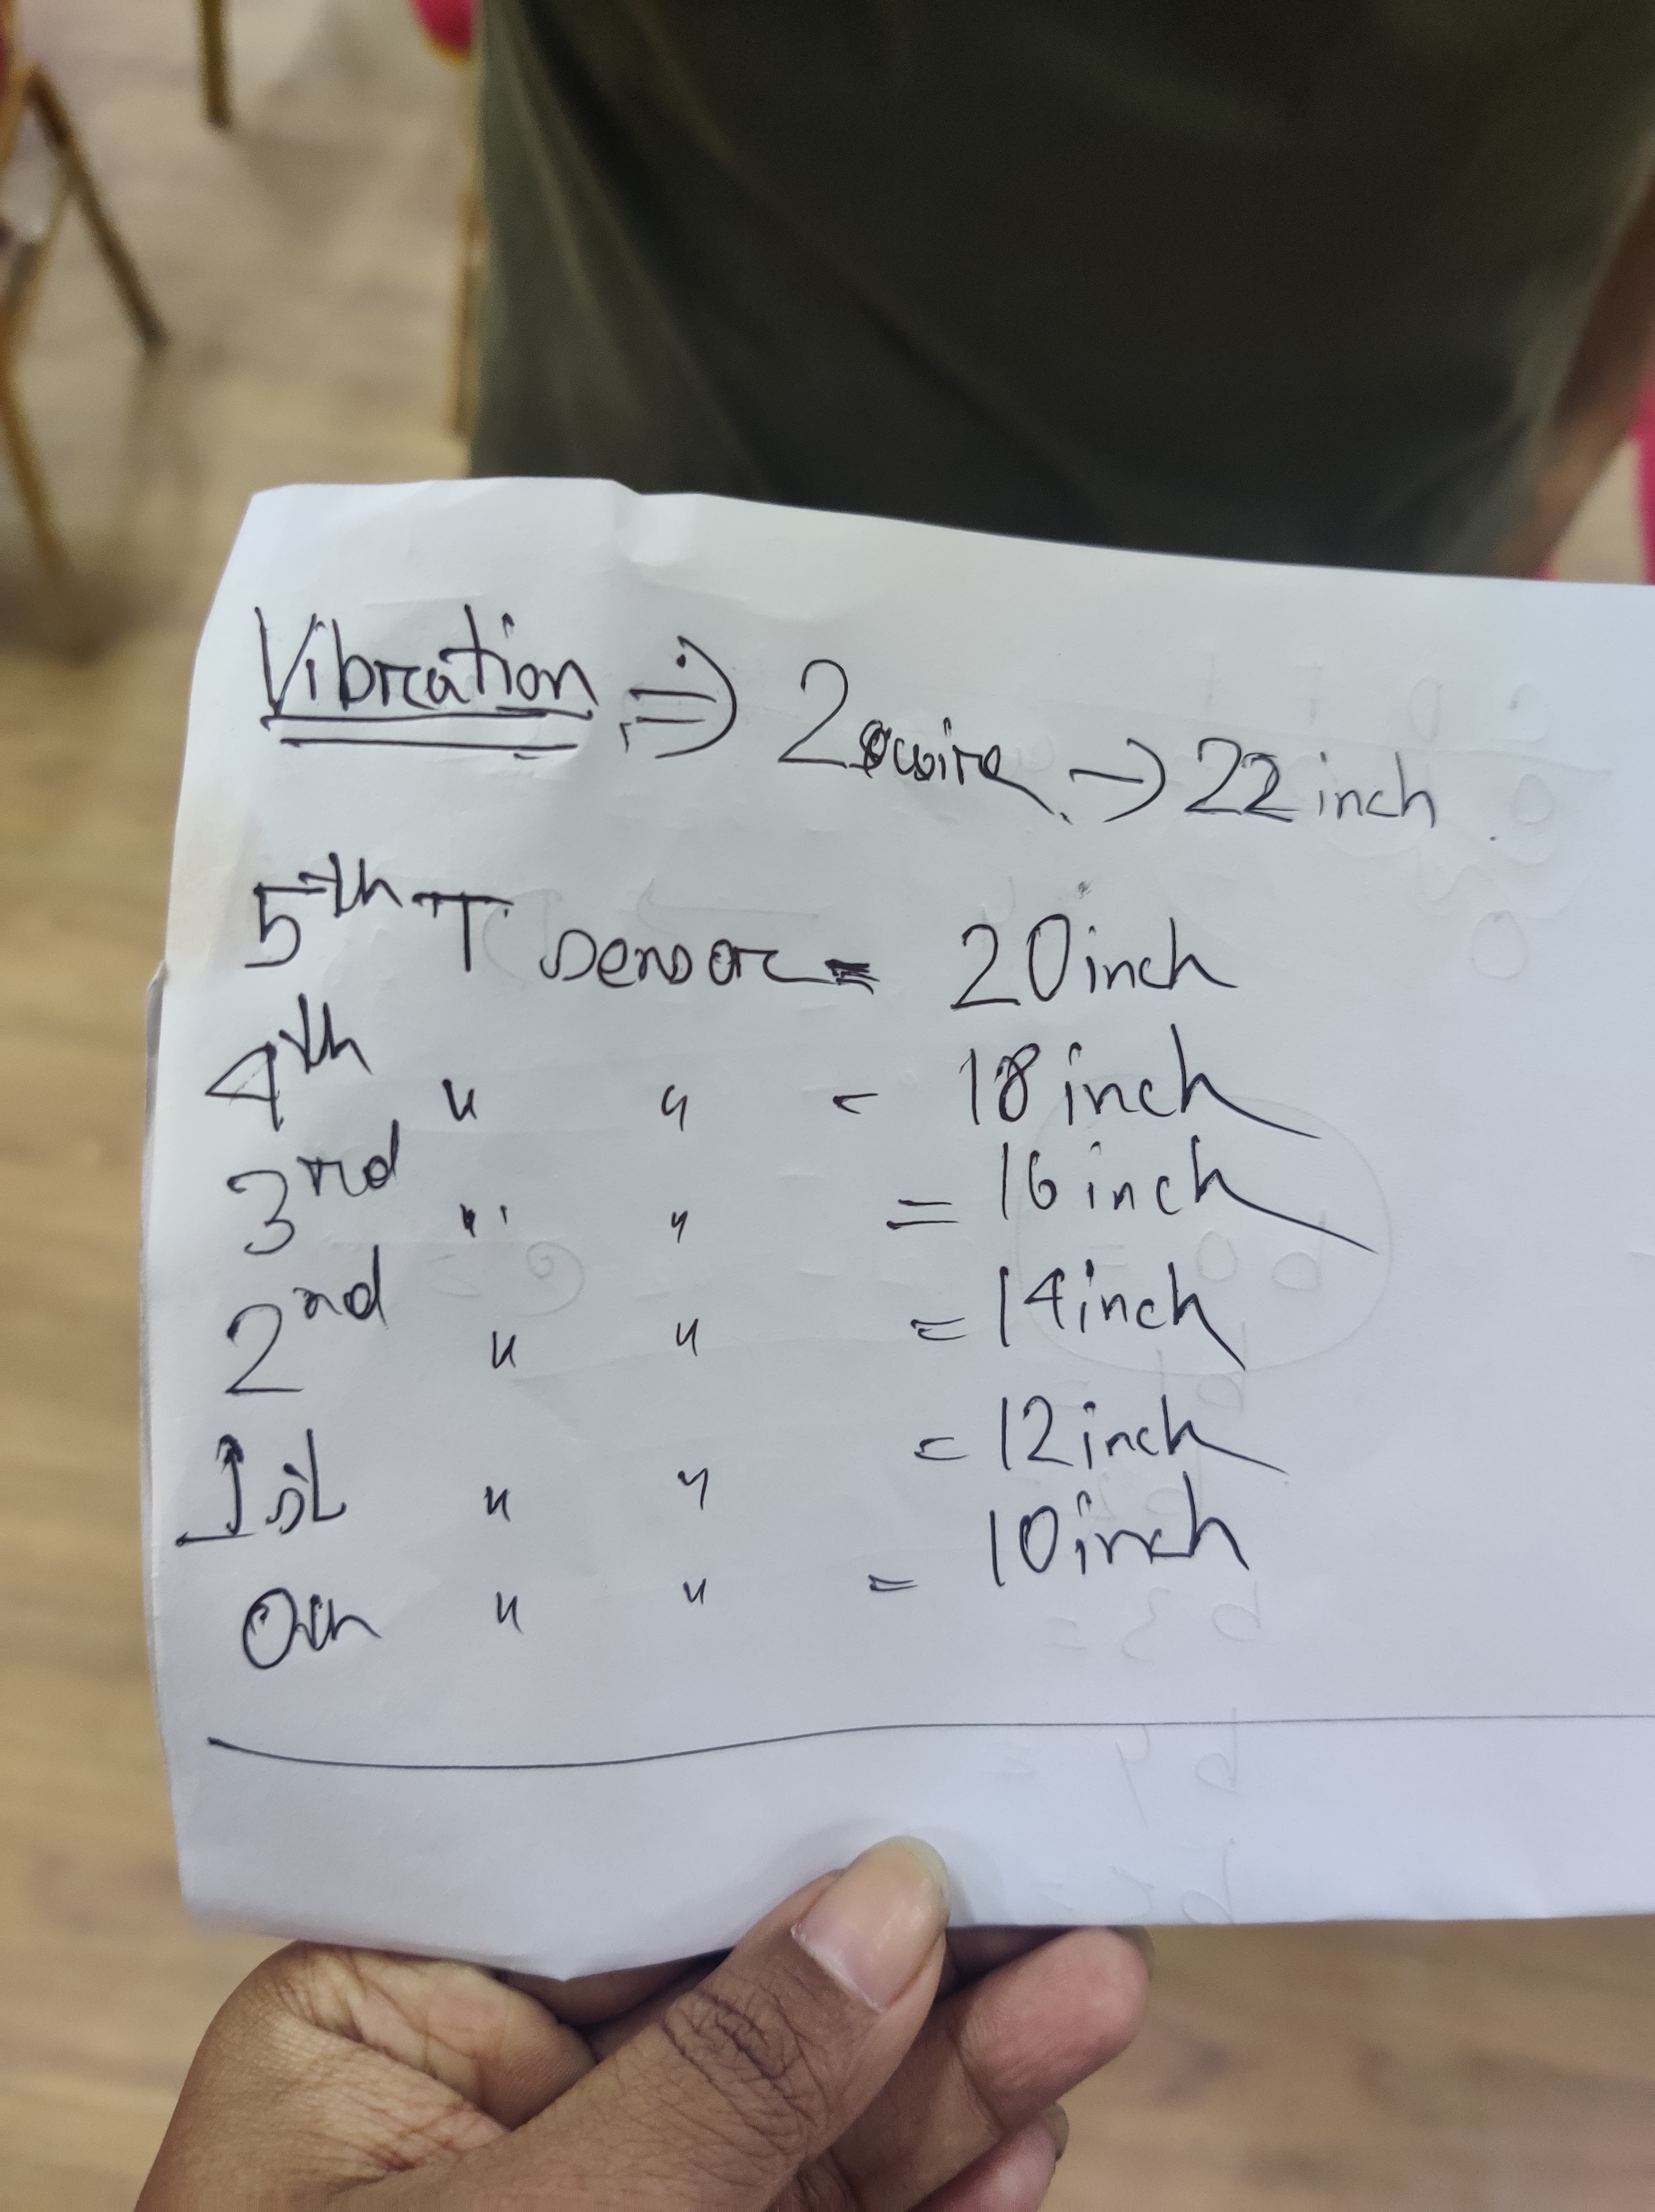 Vibration ⇒ 2 wire → 22 inch
5th T sensor = 20 inch
4th " " = 18 inch
3rd " " = 16 inch
2nd " " = 14 inch
1st " " = 12 inch
0th " " = 10 inch